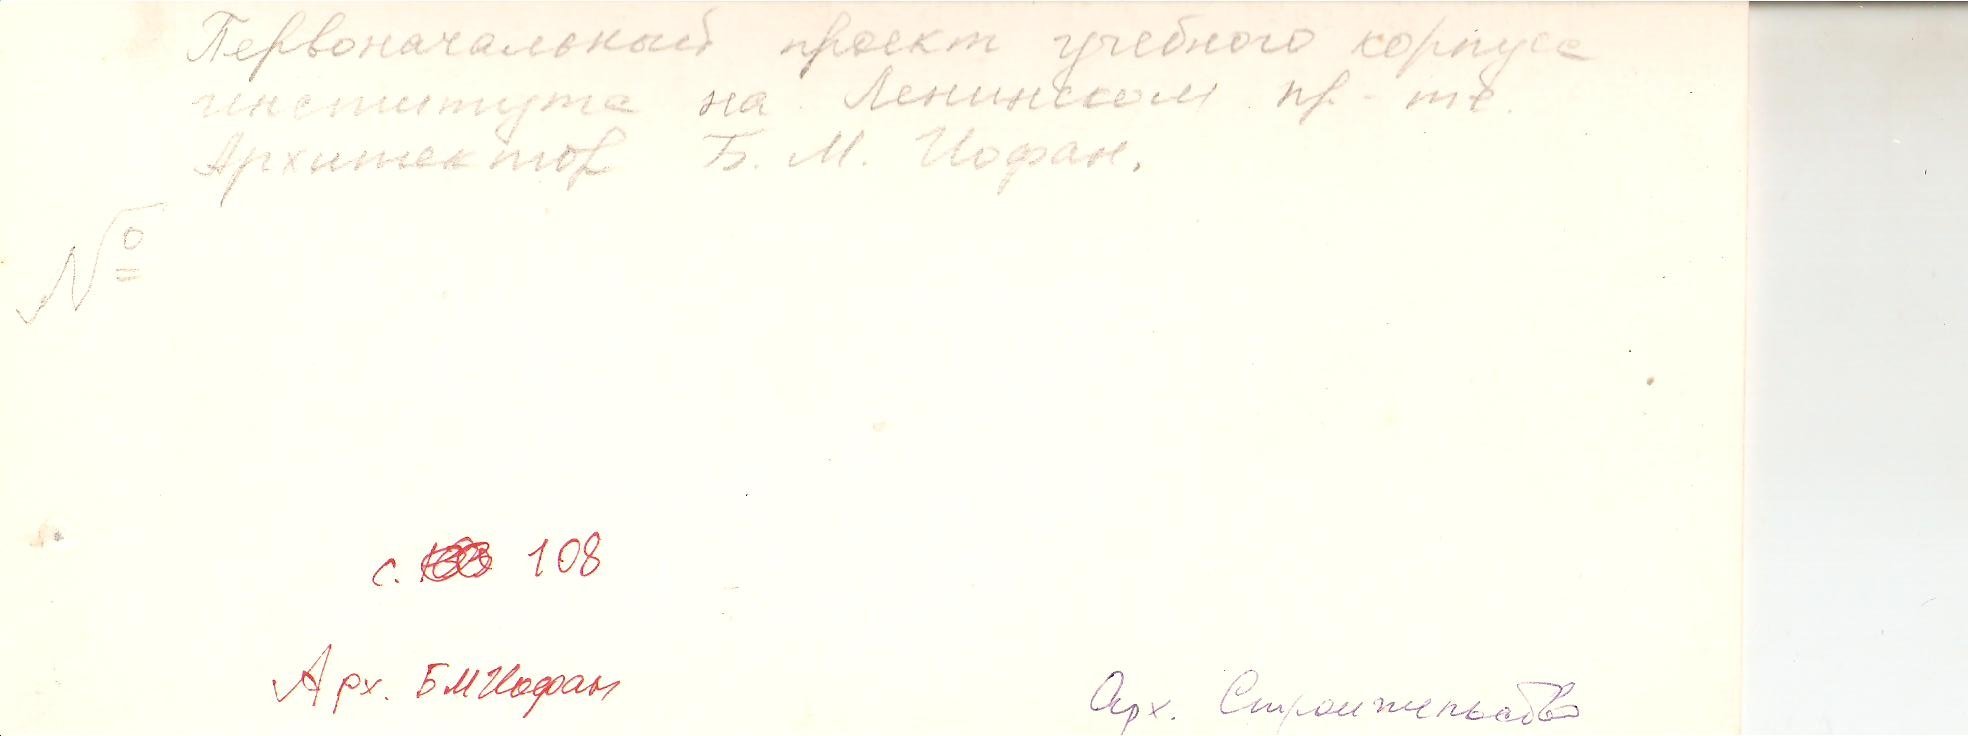 Первоначальный проект учебного корпуса
института на Ленинском пр-те.
Архитектор Б. М. Иофан.
№
с. 108
Арх. БМИофан
Арх. Строительство